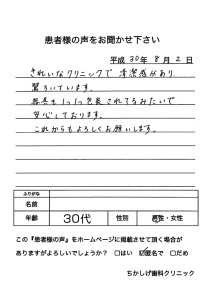 患者様の声をお聞かせ下さい
平成 30年 8月 2日
きれいなクリニックで清潔感があり、
驚いています。
器具も1つ1つ包装されてるみたいで
安心しております。
これからもよろしくお願いします。
ふりがな
名前
年齢 30代 性別 男性・女性
この『患者様の声』をホームページに掲載させて頂く場合が
ありますがよろしいでしょうか? □はい ☑匿名で □だめ
ちかしげ歯科クリニック